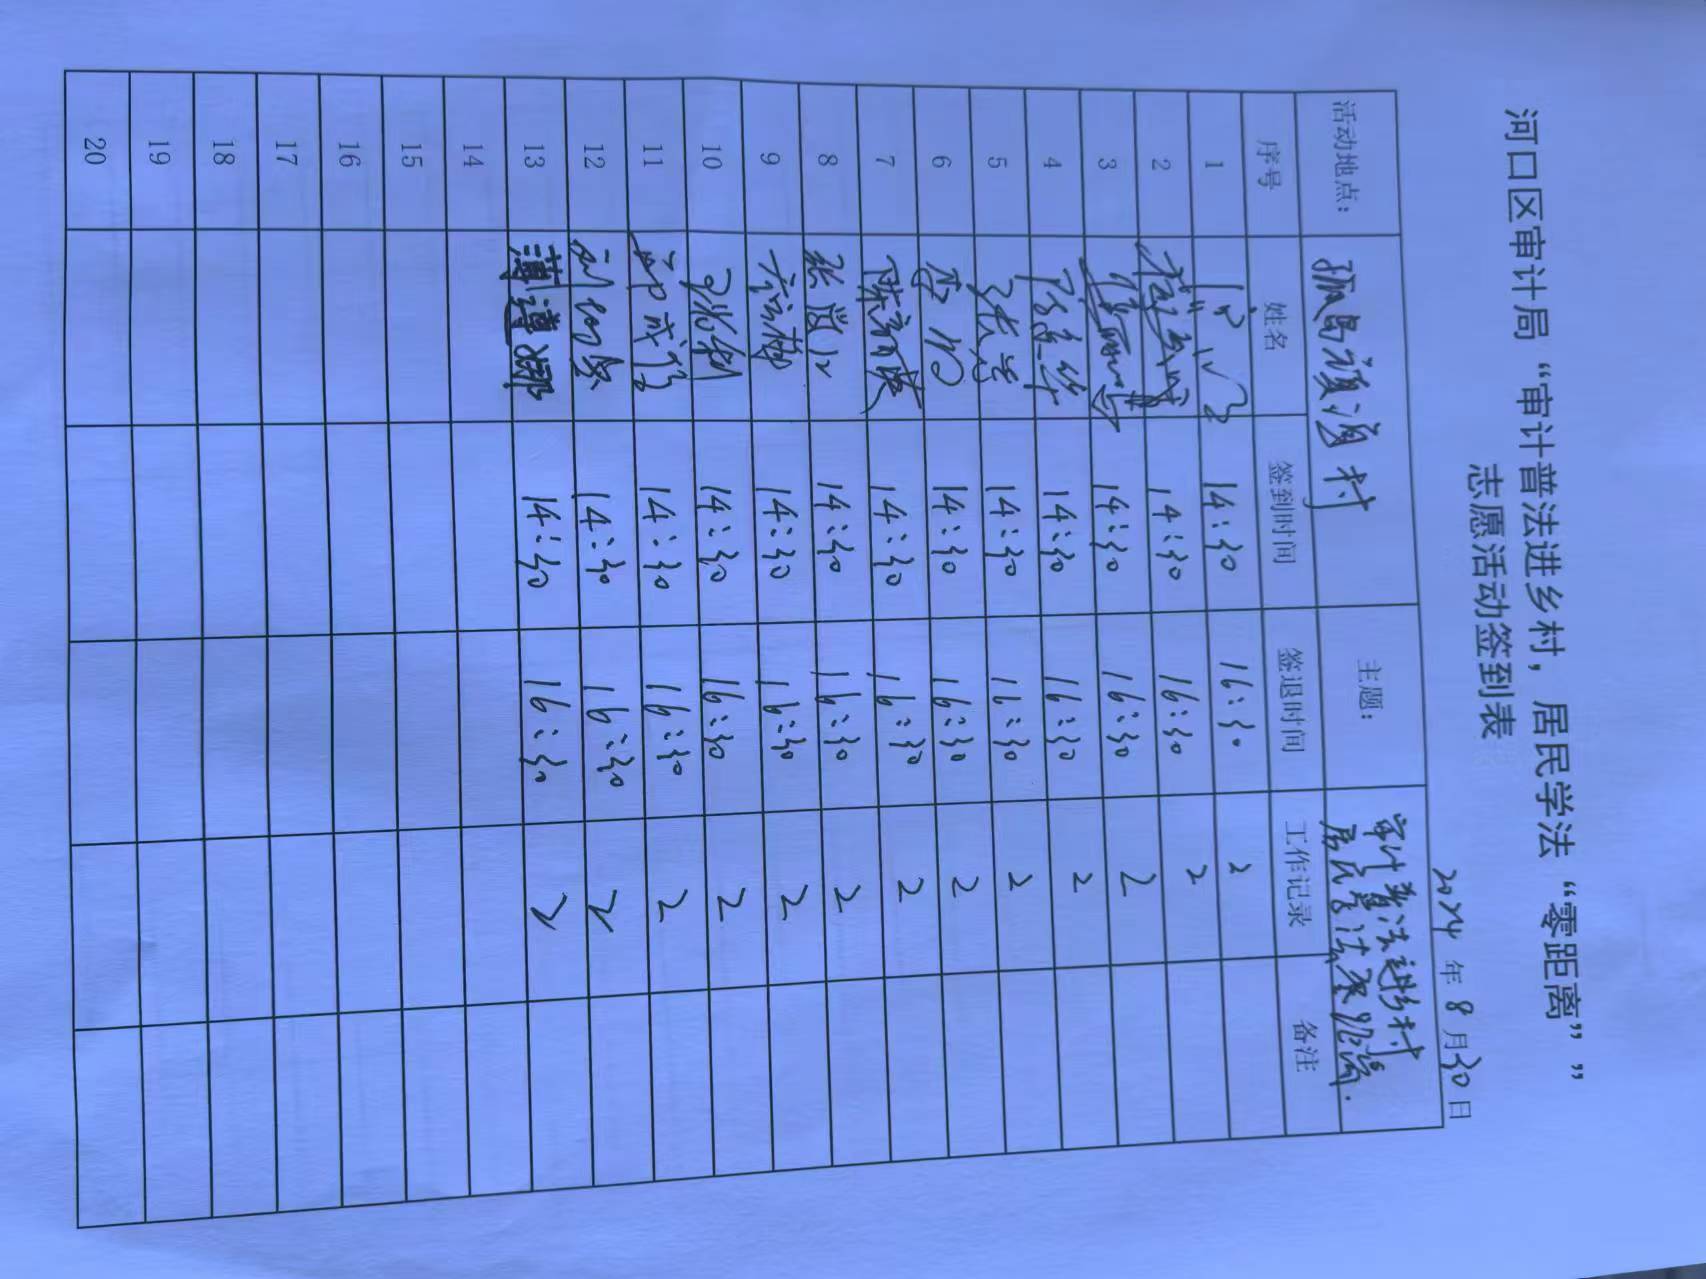 河口区审计局“审计普法进乡村，居民学法“零距离””
志愿活动签到表
2024年8月30日
活动地点： 村 主题： 审计普法进乡村
居民学法零距离.
序号 姓名 签到时间 签退时间 工作记录 备注
1 14:30 16:30 2
2 14:30 16:30 2
3 14:30 16:30 2
4 14:30 16:30 2
5 14:30 16:30 2
6 14:30 16:30 2
7 14:30 16:30 2
8 14:30 16:30 2
9 14:30 16:30 2
10 14:30 16:30 2
11 14:30 16:30 2
12 14:30 16:30 2
13 14:30 16:30 2
14
15
16
17
18
19
20